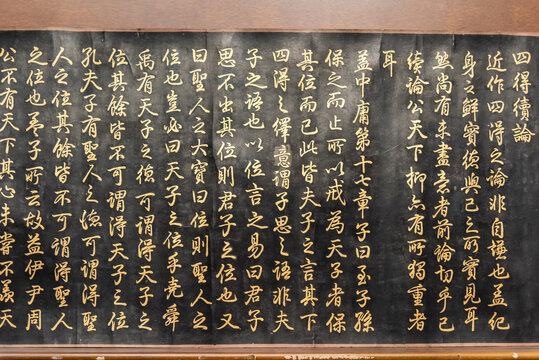 四得續論
近作四得之論非自謙也蓋紀
身之鮮實德與己之所實見耳
然尚有未盡意者前論切乎己
續論公天下抑亦有所獨重者
耳
蓋中庸第十七章子曰至子孫
保之而止所以戒為天子者保
其位而已此皆夫子之言其下
四得之繹意謂子思之語非夫
子之語也以位言之易曰君子
思不出其位則君子之位也又
曰聖人之大寶曰位則聖人之
位也豈必曰天子之位乎堯舜
禹有天子之德可謂得天子之
位其餘皆不可謂得天子之位
孔夫子有聖人之德可謂得聖
人之位其餘皆不可謂得聖人
之位也孟子所云故益伊尹周
公不有天下其心未嘗不義天